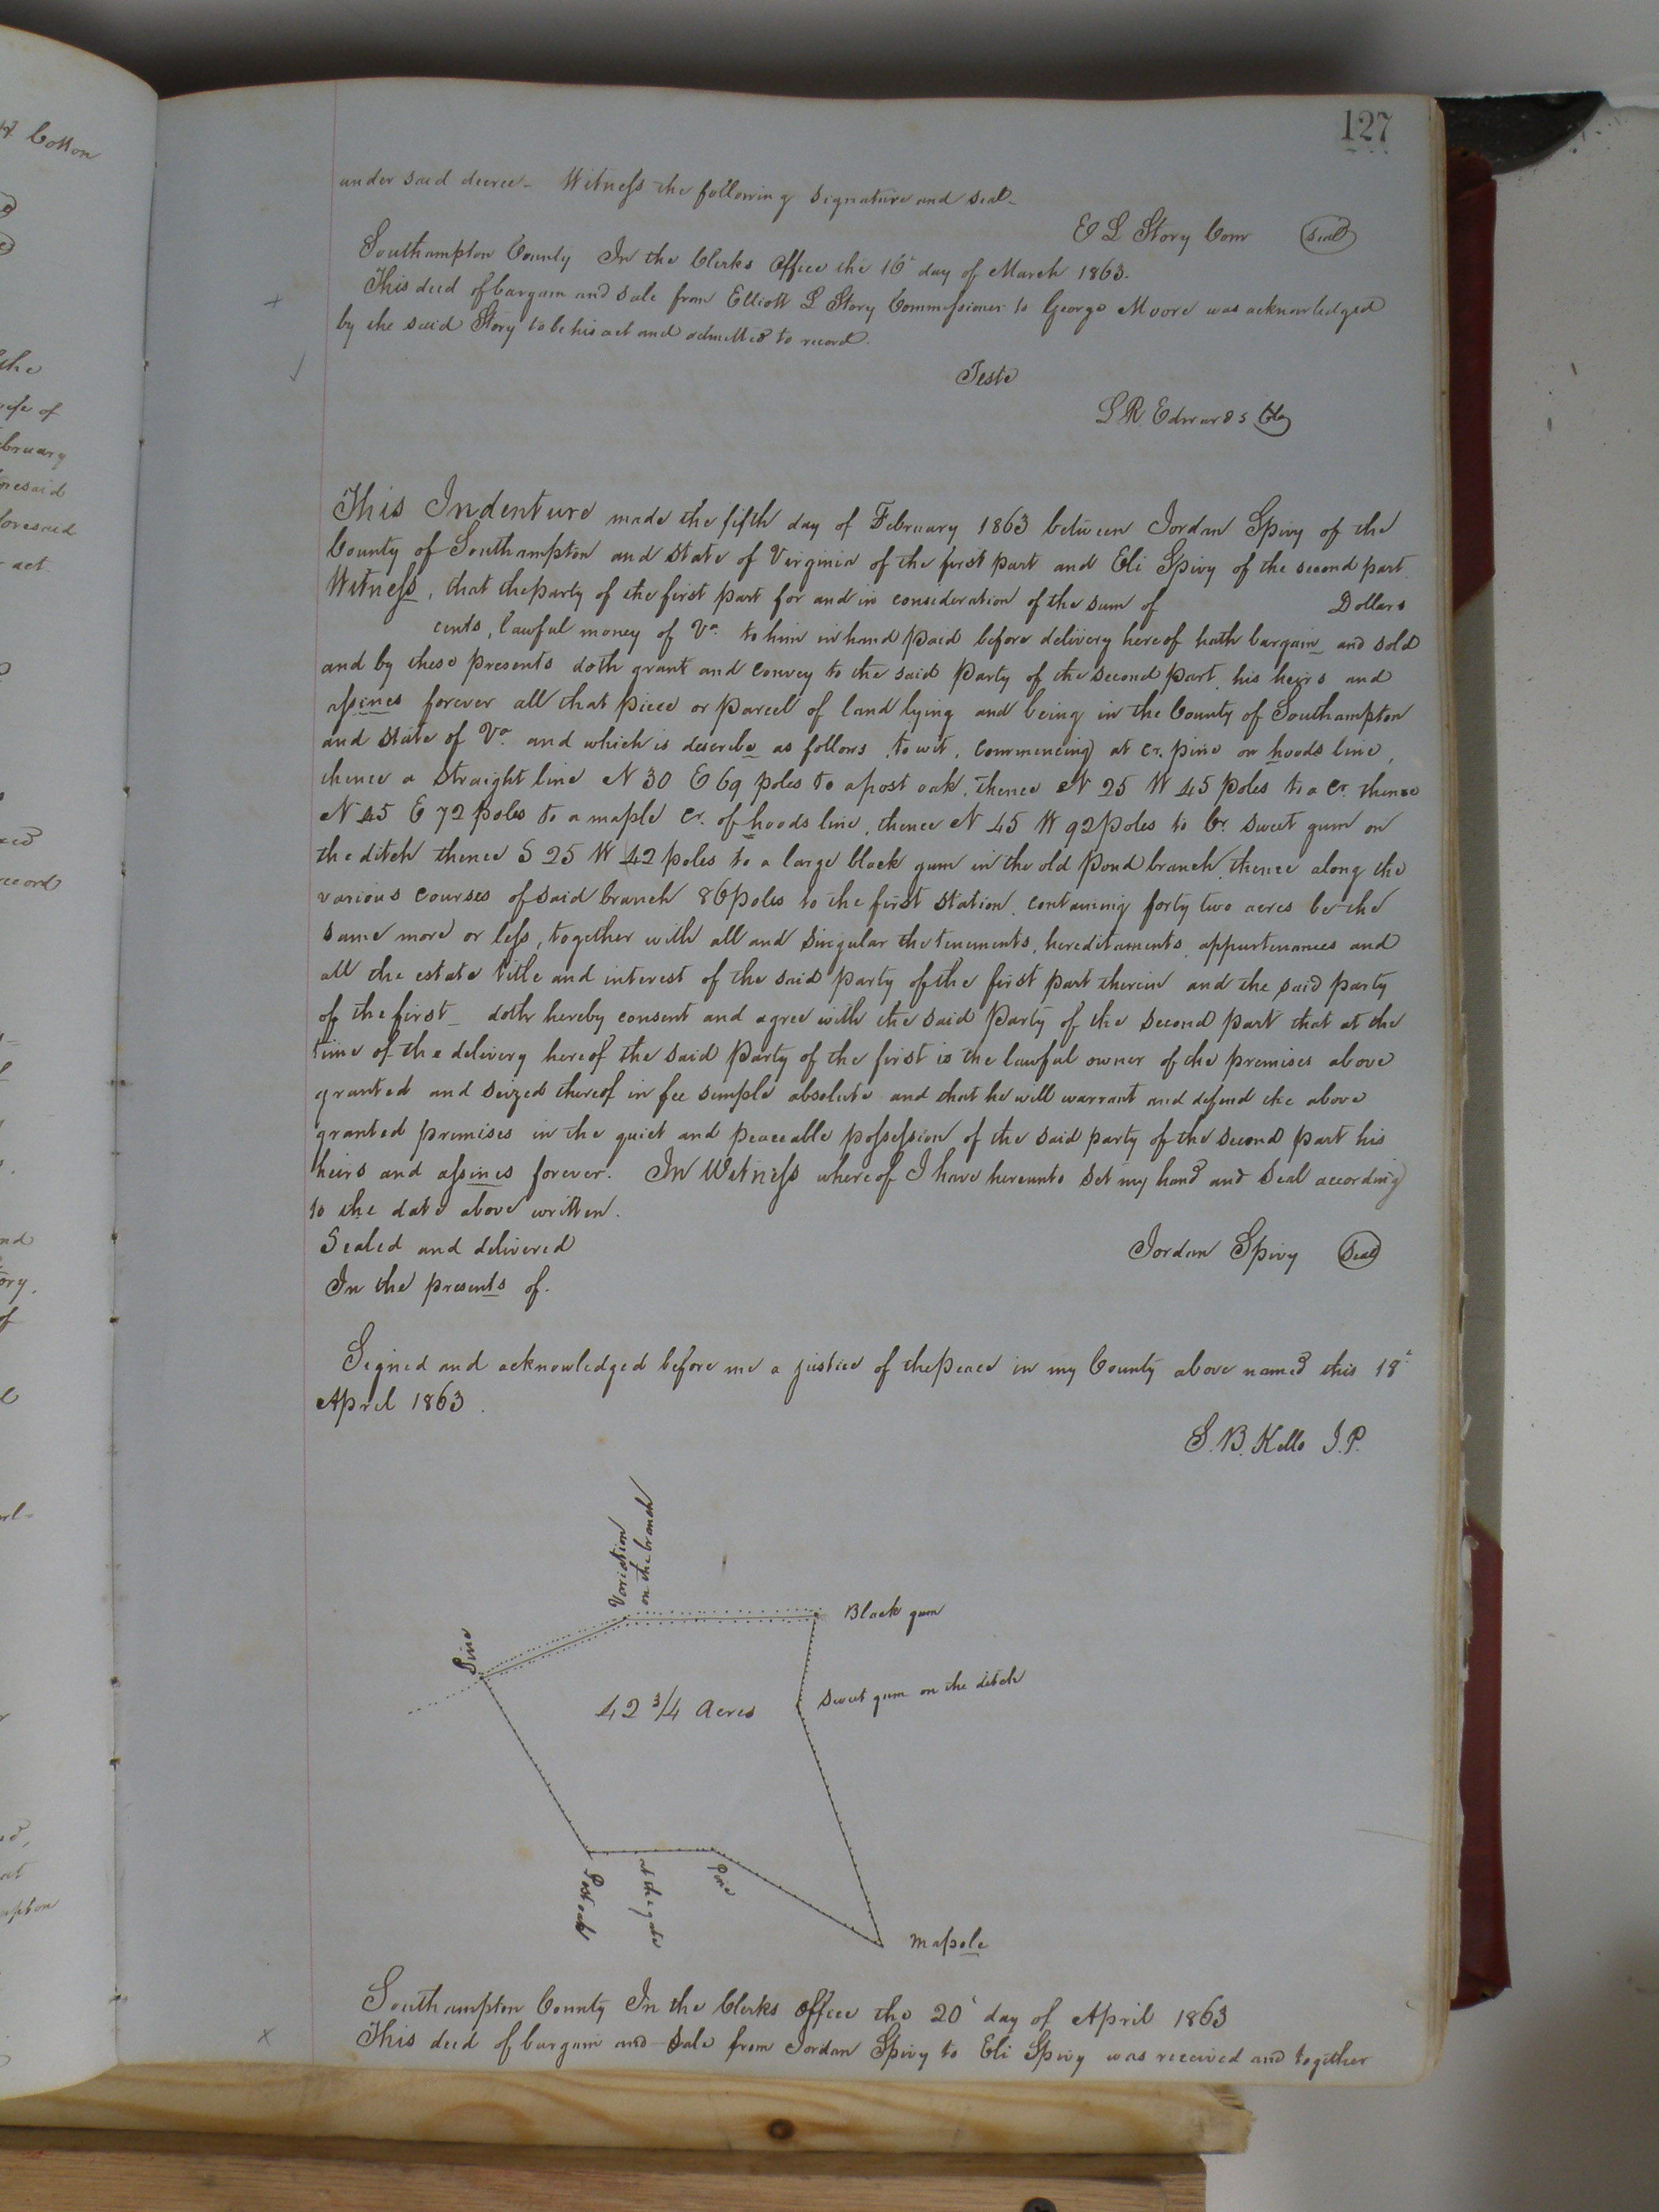 127
under said decree - Witness the following signature and seal -
E L Story Com Seal
Southampton County In the Clerks Office the 16th day of March 1863.
This deed of bargain and sale from Elliott L Story Commissioner to George Moore was acknowledged
by the said Story to be his act and admitted to record.
Teste
L R Edwards Clk
This Indenture made the fifth day of February 1863 between Jordan Spivy of the
County of Southampton and State of Virginia of the first part and Eli Spivy of the second part.
Witness, that the party of the first part for and in consideration of the sum of Dollars
cents, lawful money of Va. to him in hand paid before delivery hereof hath bargain and sold
and by these presents doth grant and convey to the said Party of the second part, his heirs and
assines forever all that piece or parcel of land lying and being in the County of Southampton
and State of Va. and which is describe as follows, to wit, Commencing at cr. pine on hoods line,
thence a straight line N 30 E 69 poles to a post oak, thence N 25 W 45 poles to a cr. thence
N 45 E 72 poles to a maple cr. of hoods line, thence N 45 W 92 poles to cr. sweet gum on
the ditch thence S 25 W 42 poles to a large black gum in the old Pond branch, thence along the
various courses of said branch 86 poles to the first station, containing forty two acres be the
same more or less, together with all and singular the tenements, hereditaments, appurtenances and
all the estate title and interest of the said party of the first part therein and the said party
of the first - doth hereby consent and agree with the said Party of the second part that at the
time of the delivery hereof the said Party of the first is the lawful owner of the premises above
granted and seized thereof in fee simple absolute and that he will warrant and defend the above
granted premises in the quiet and peaceable possession of the said party of the second part his
heirs and assines forever. In Witness whereof I have hereunto set my hand and seal according
to the date above written.
Sealed and delivered Jordan Spivy Seal
In the presents of.
Signed and acknowledged before me a justice of the peace in my County above named this 18th
April 1863.
S. B. Kello J.P.
Variation
on the branch
Black gum
Pine
42 3/4 Acres
Sweet gum on the ditch
Post oak
at the gate
Pine
Mapole
Southampton County In the Clerks Office the 20th day of April 1863
This deed of bargain and Sale from Jordan Spivy to Eli Spivy was received and together